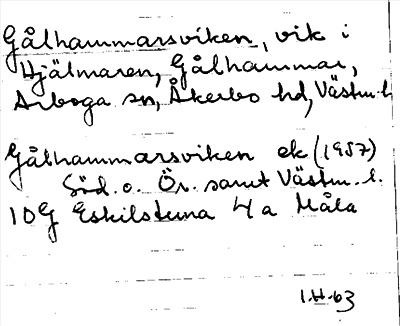 Gålhammarsviken, vik i
Hjälmaren, Gålhammar,
Arboga sn, Åkerbo hd, Västm.l.
Gålhammarsviken ek (1957)
Söd. o. Ör. samt Västm. l.
10G Eskilstuna 4 a Måla
1.H.63